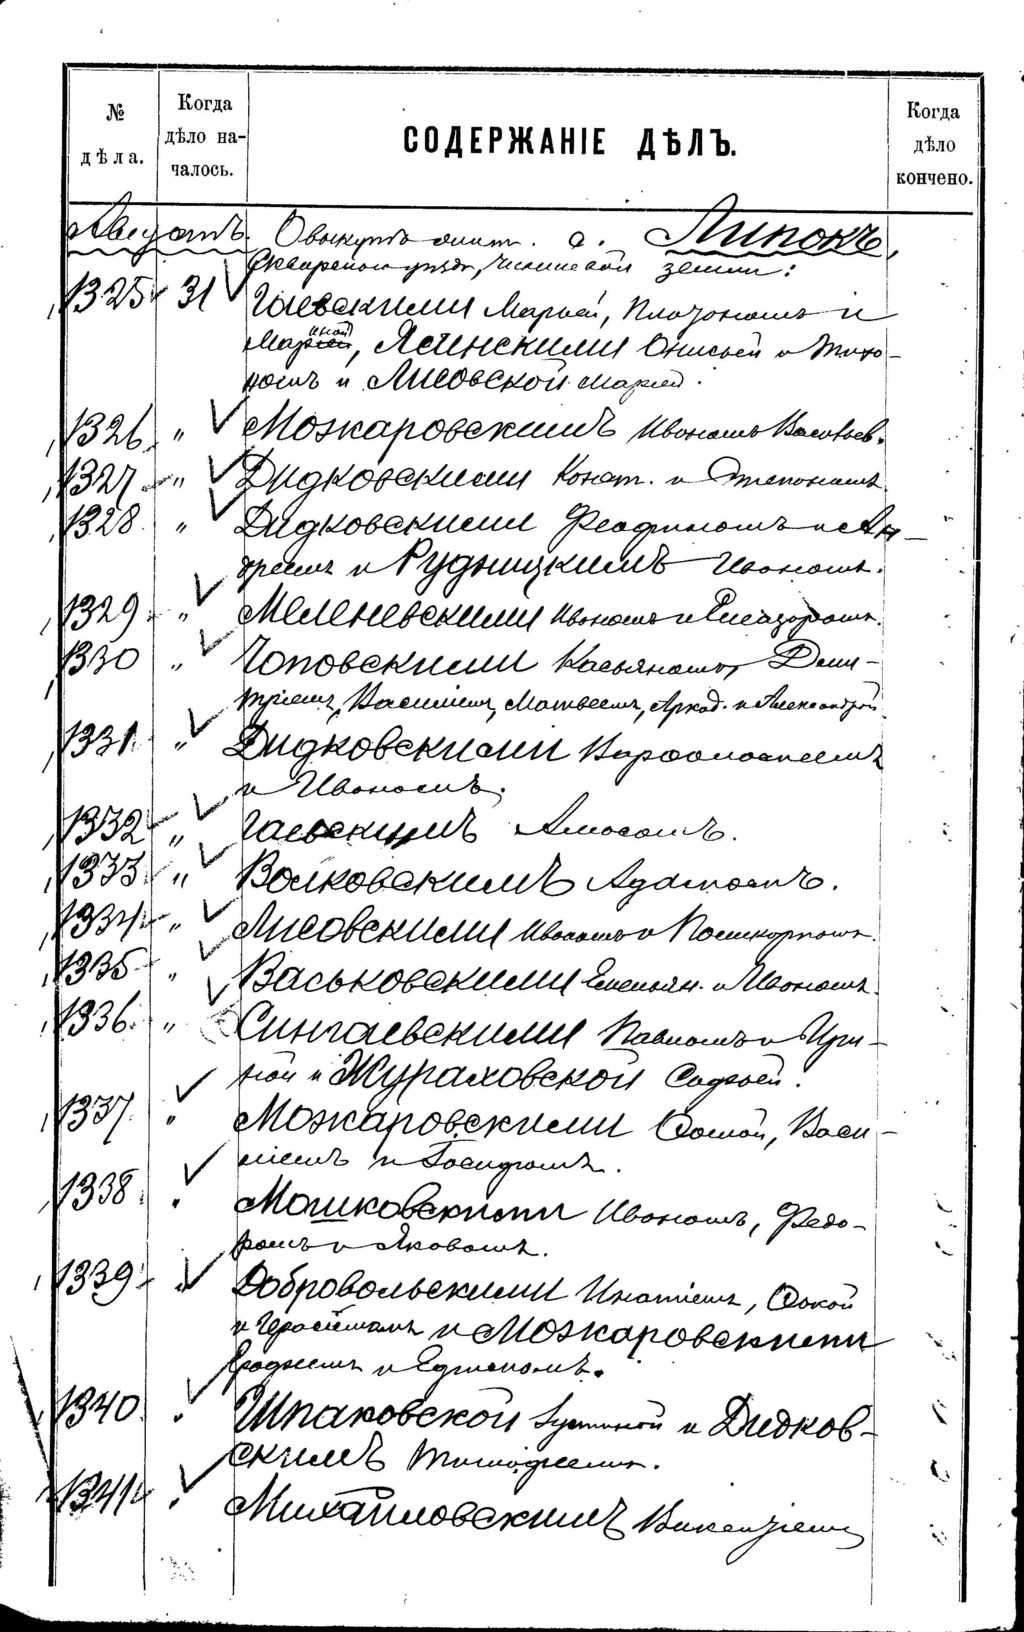 №
дѣла.
Когда
дѣло на-
чалось.
СОДЕРЖАНІЕ ДѢЛЪ.
Когда
дѣло
кончено.
Августъ. О выкупѣ с. Липокъ,
земли:
1325 31 Гаевскими Маріей, Платономъ и
Маріной, Ясинскими Онисьей и Тихо-
номъ и Лисовской Маріей.
1326 " Можаровскимъ Иваномъ Васильев.
1327 " Дидковскими Конст. и Степаномъ
1328. " Дидковскими Феофаномъ и Ан-
дреемъ и Рудницкимъ Иваномъ.
1329. " Меленевскими Иваномъ и
1330 " Чоповскими Касьяномъ, Дми-
тріемъ, Василіемъ, Матвеемъ, Аркад. и Александрой
1331. " Дидковскими Варфоломеемъ
и Иваномъ.
1332 " Гаевскимъ Амосомъ.
1333. " Войковскимъ Адамомъ.
1334 " Лисовскими Иваномъ и Поликарпомъ.
1335 " Васьковскими Емельян. и Иваномъ
1336. " Сингаевскими Павломъ и Ири-
ной и Жураховской Софіей.
1337. " Можаровскими Фомой, Васи-
ліемъ и
1338. " Мошковскими Иваномъ, Федо-
ромъ и Яковомъ.
1339 " Добровольскими Игнатіемъ, Фокой
и Герасимомъ и Можаровскими
и
1340. " Шпаковской Густиной и Дидков-
скимъ Тимофеемъ.
1341 " Михайловскимъ Викентіемъ